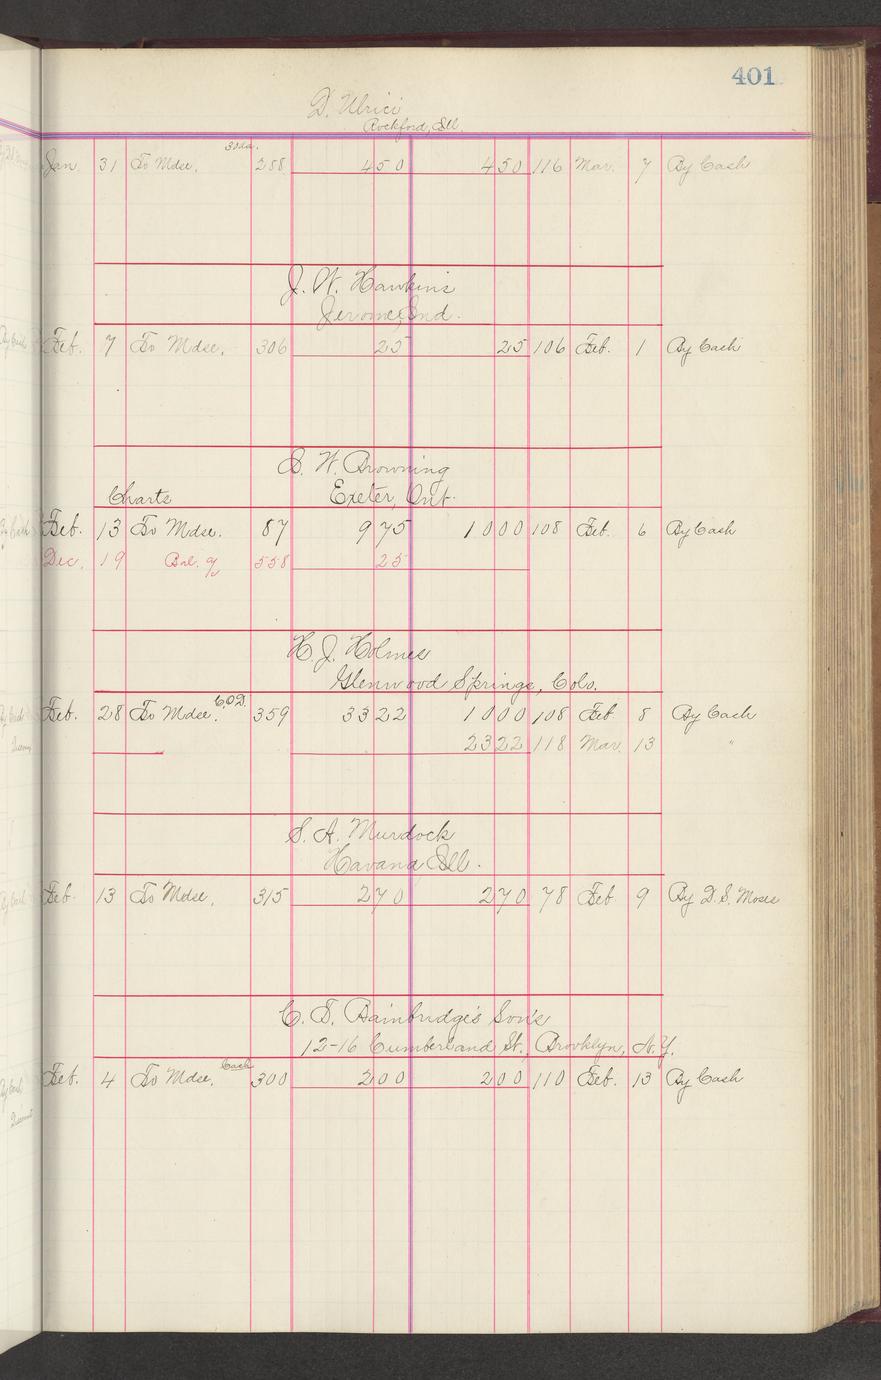 401
D. Ulrici
Rockford, Ill.
30da.
Jan. 31 To Mdse. 288 4 50 4 50 116 Mar. 7 By Cash
J. W. Hawkins
Jerome, Ind.
Feb. 7 To Mdse. 306 25 25 106 Feb. 1 By Cash
S. W. Browning
Charts Exeter, Ont.
Feb. 13 To Mdse. 87 9 75 10 00 108 Feb. 6 By Cash
Dec. 19 Bal. 558 25
H. J. Holmes
Glenwood Springs, Colo.
Feb. 28 To Mdse. C.O.D. 359 33 22 10 00 108 Feb 8 By Cash
23 22 118 Mar. 13 "
S. A. Murdock
Havana Ill.
Feb. 13 To Mdse. 315 2 70 2 70 78 Feb. 9 By D. S. Moses
C. T. Bainbridge's Son's
12-16 Cumberland St., Brooklyn, N.Y.
Feb. 4 To Mdse. Cash 300 2 00 2 00 110 Feb. 13 By Cash